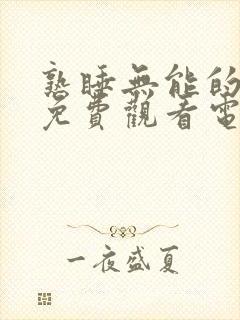 熟睡無能的
免費觀看電
一夜盛夏